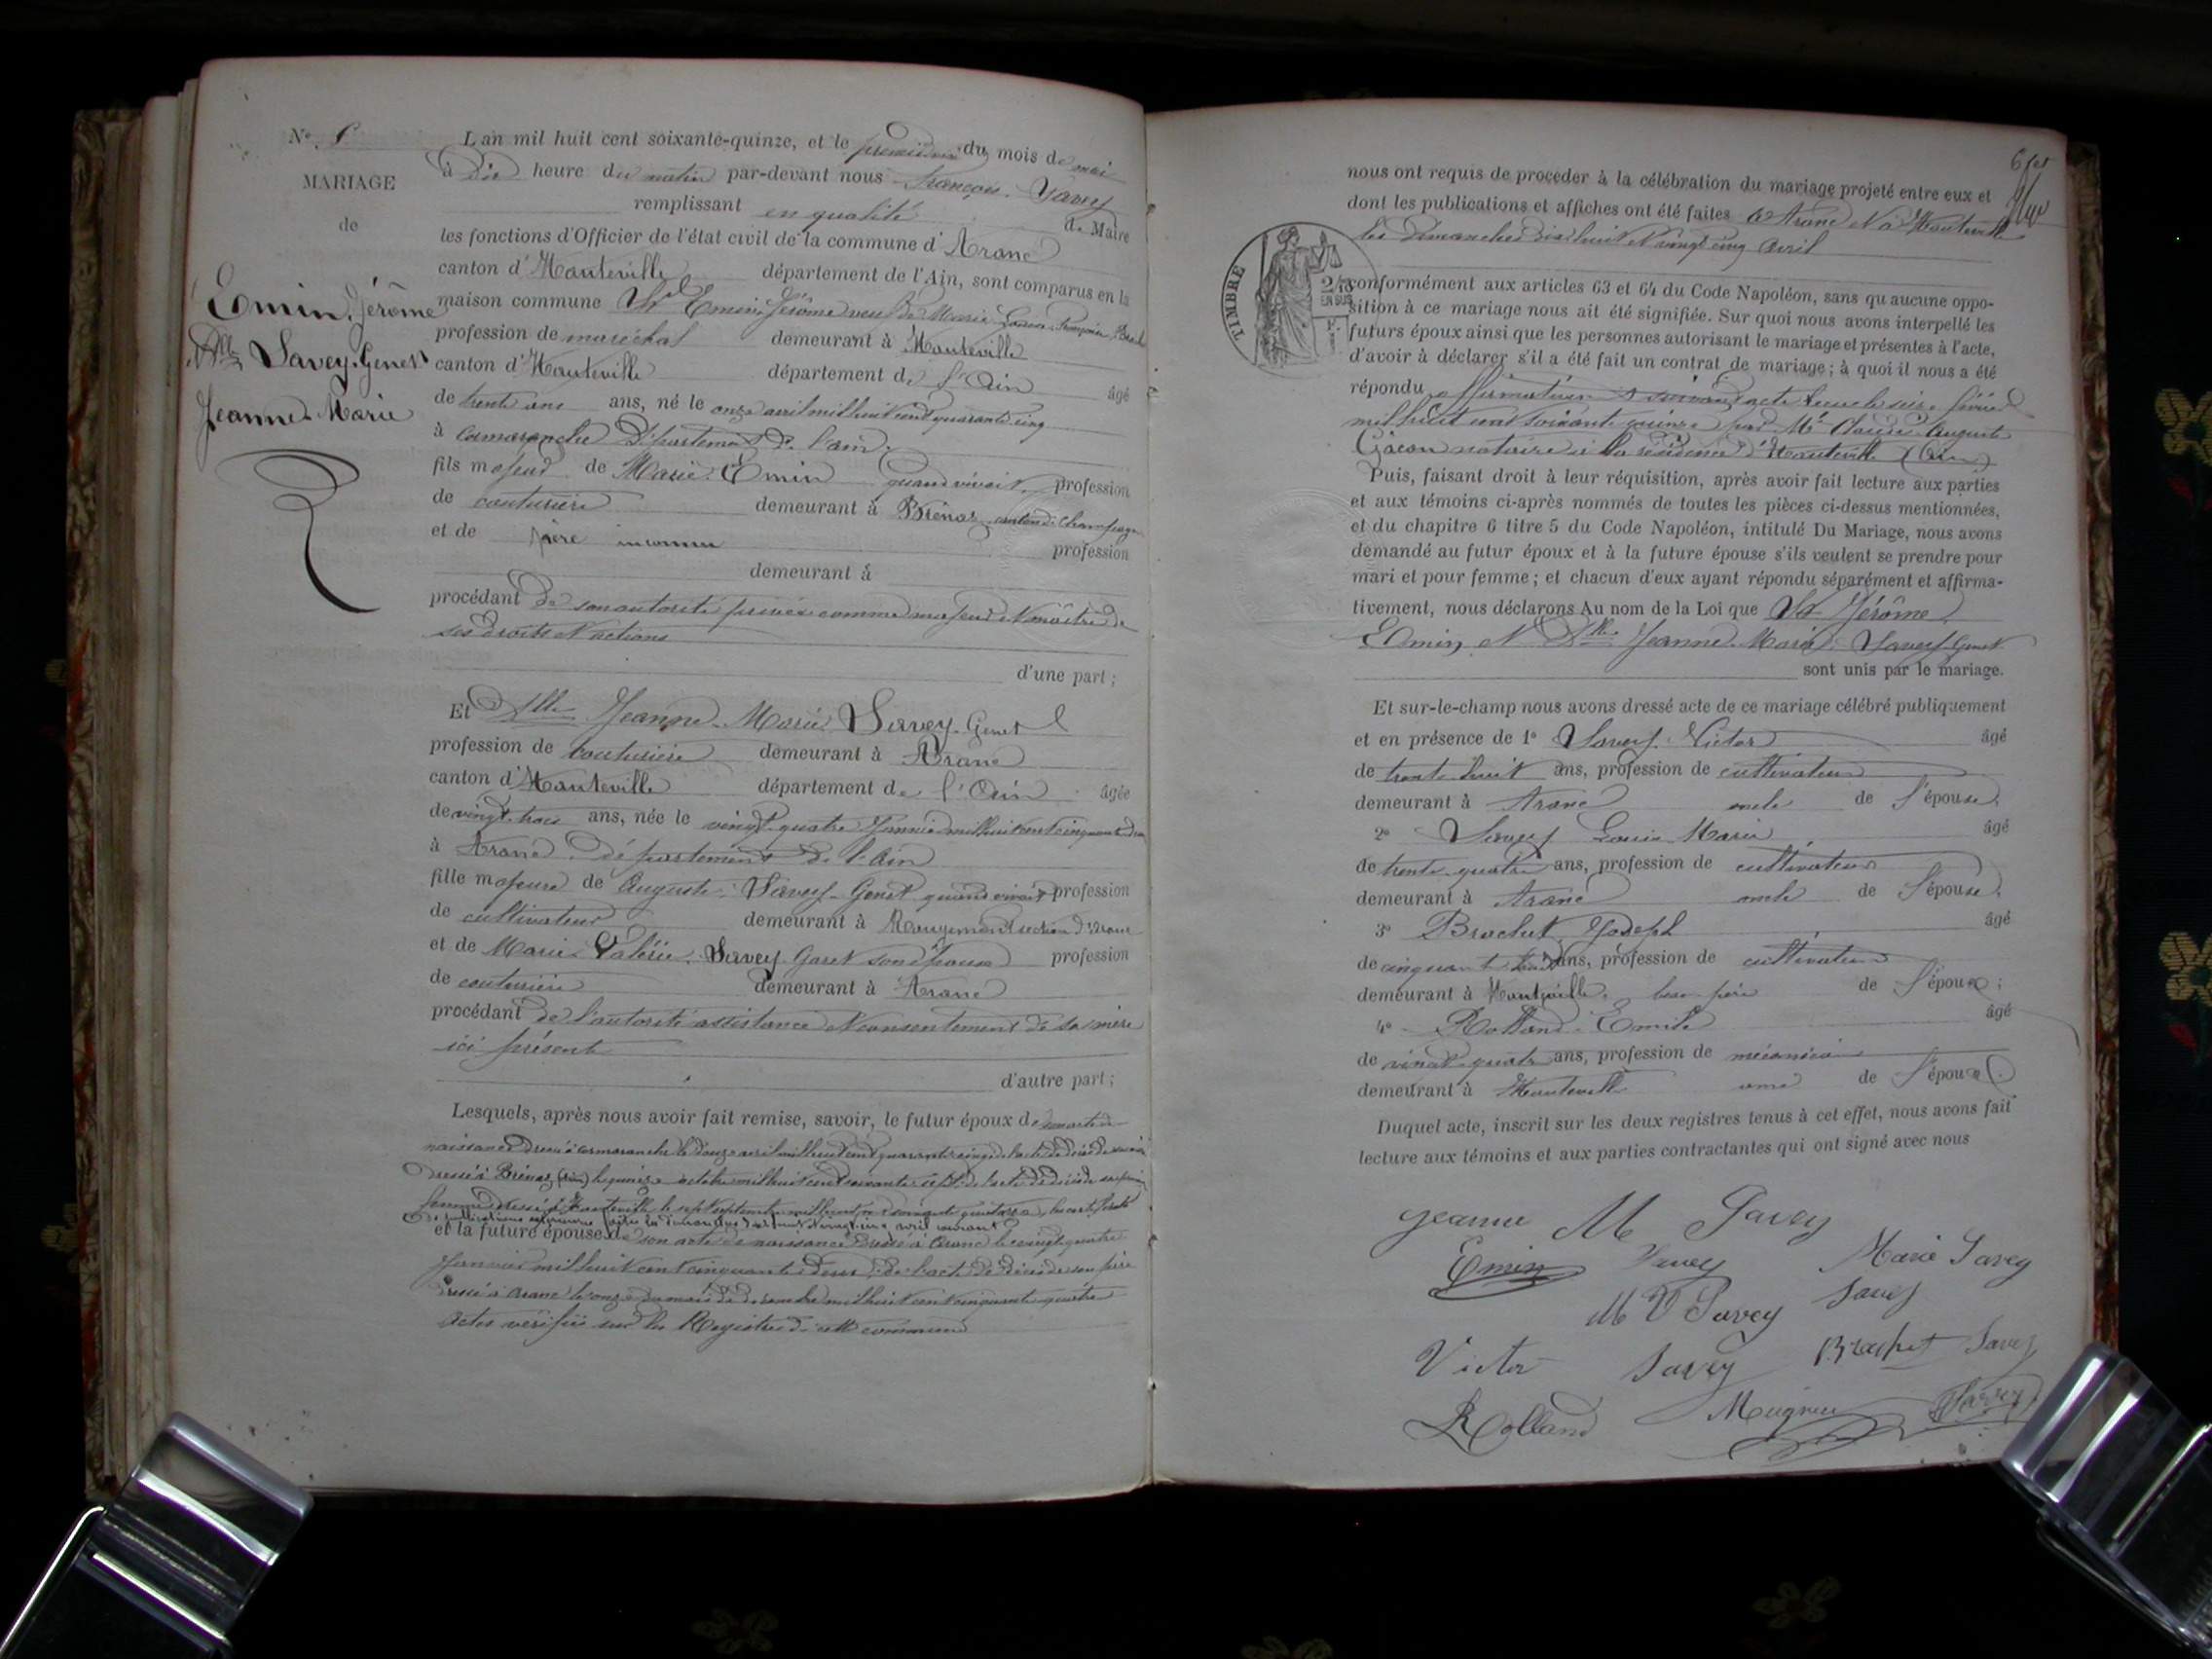 L'an mil huit cent soixante-quinze, et le premier du mois de mai
No
MARIAGE
à Dix heure du matin par-devant nous François Savey
remplissant en qualité de Maire
de
les fonctions d'Officier de l'état civil de la commune d'Aranc
canton d'Hauteville département de l'Ain, sont comparus en la
Emin, Jérôme
maison commune Sr Emin, Jérôme veuf de Marie Louise Françoise
profession de maréchal demeurant à Hauteville
Dlle Savey-Genet
canton d'Hauteville département de l'Ain âgé
Jeanne-Marie
de trente ans ans, né le onze avril mil huit cent quarante cinq
à Cormaranche Département de l'ain.
fils majeur de Marie Emin quand vivait profession
de couturière demeurant à Brénaz canton de Champagne
et de père inconnu profession
demeurant à
procédant de son autorité privée comme majeur et maître de
ses droits et actions
d'une part ;
Et Dlle Jeanne-Marie Savey-Genet
profession de couturière demeurant à Aranc
canton d'Hauteville département de l'Ain âgée
de vingt-trois ans, née le vingt-quatre Janvier mil huit cent cinquante deux
à Aranc. département de l'Ain
fille majeure de Auguste Savey-Genet quand vivait profession
de cultivateur demeurant à Rougemont section d'Aranc
et de Marie Valérie Savey Garet son épouse profession
de couturière demeurant à Aranc
procédant de l'autorité assistance et consentement de sa mère
ici présente
d'autre part ;
Lesquels, après nous avoir fait remise, savoir, le futur époux de son acte de
naissance dressé à cormaranche le douze avril mil huit cent quarante cinq de l'acte de décès de sa mère
dressé à Brénaz (ain) le quinze octobre mil huit cent soixante sept de l'acte de décès de sa
femme dressé à Hauteville le sept septembre mil huit cent soixante quatorze, les certificats
de publications faites les dimanches dix huit et vingt cinq avril courant
et la future épouse de son acte de naissance dressé à Aranc le vingt quatre
Janvier mil huit cent cinquante deux de l'acte de décès de son père
dressé à Aranc le onze du mois de décembre mil huit cent cinquante quatre
actes vérifiés sur les Registres de cette commune
6 fet
nous ont requis de procéder à la célébration du mariage projeté entre eux et
dont les publications et affiches ont été faites à Aranc et à Hauteville
les Dimanches dix huit et vingt cinq avril
TIMBRE
2/10
EN SUS
conformément aux articles 63 et 64 du Code Napoléon, sans qu'aucune oppo-
sition à ce mariage nous ait été signifiée. Sur quoi nous avons interpellé les
futurs époux ainsi que les personnes autorisant le mariage et présentes à l'acte,
d'avoir à déclarer s'il a été fait un contrat de mariage ; à quoi il nous a été
répondu affirmativement suivant acte reçu le seize février
mil huit cent soixante quinze par Me Claude Auguste
notaire à la résidence d'Hauteville (Ain)
Puis, faisant droit à leur réquisition, après avoir fait lecture aux parties
et aux témoins ci-après nommés de toutes les pièces ci-dessus mentionnées,
et du chapitre 6 titre 5 du Code Napoléon, intitulé Du Mariage, nous avons
demandé au futur époux et à la future épouse s'ils veulent se prendre pour
mari et pour femme ; et chacun d'eux ayant répondu séparément et affirma-
tivement, nous déclarons Au nom de la Loi que Sr Jérôme
Emin et Dlle Jeanne-Marie Savey-Genet
sont unis par le mariage.
Et sur-le-champ nous avons dressé acte de ce mariage célébré publiquement
et en présence de 1o Savey Victor âgé
de trente huit ans, profession de cultivateur
demeurant à Aranc oncle de l'épouse,
2o Savey Louis Marie âgé
de trente-quatre ans, profession de cultivateur
demeurant à Aranc oncle de l'épouse,
3o Brachet Joseph âgé
de cinquante ans, profession de cultivateur
demeurant à Hauteville, beau-père de l'époux ;
4o Rolland Emile âgé
de vingt quatre ans, profession de mécanicien
demeurant à Hauteville ami de l'époux
Duquel acte, inscrit sur les deux registres tenus à cet effet, nous avons fait
lecture aux témoins et aux parties contractantes qui ont signé avec nous
jeanne M Savey
Emin Savey Marie Savey
M V Savey Savey
Victor Savey Brachet Savey
Rolland Mugnier Savey